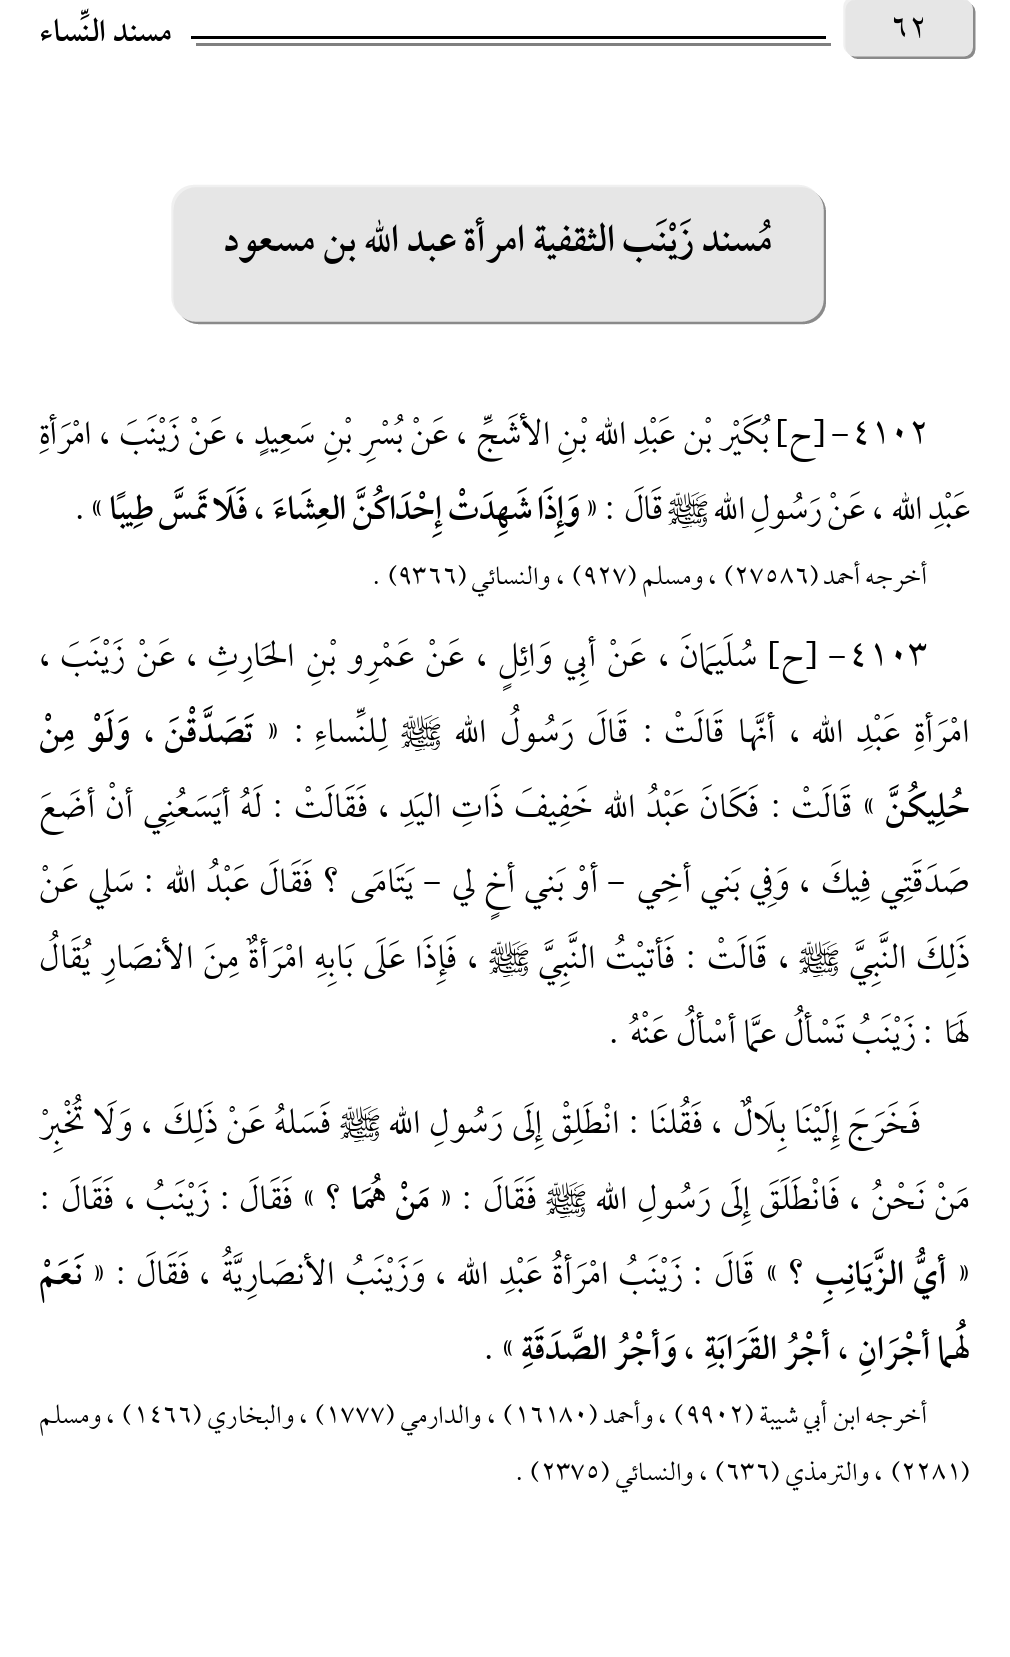 ٦٢
مسند النِّساء
مُسند زَيْنَب الثقفية امرأة عبد الله بن مسعود
٤١٠٢- [ح] بُكَيْر بْن عَبْدِ الله بْنِ الأشَجِّ ، عَنْ بُسْرِ بْنِ سَعِيدٍ ، عَنْ زَيْنَبَ ، امْرَأةِ
عَبْدِ الله ، عَنْ رَسُولِ الله ﷺ قَالَ : « وَإِذَا شَهِدَتْ إِحْدَاكُنَّ العِشَاءَ ، فَلَا تَمَسَّ طِيبًا » .
أخرجه أحمد (٢٧٥٨٦) ، ومسلم (٩٢٧) ، والنسائي (٩٣٦٦) .
٤١٠٣- [ح] سُلَيمَانَ ، عَنْ أبِي وَائِلٍ ، عَنْ عَمْرِو بْنِ الحَارِثِ ، عَنْ زَيْنَبَ ،
امْرَأةِ عَبْدِ الله ، أنَّها قَالَتْ : قَالَ رَسُولُ الله ﷺ لِلنِّساءِ : « تَصَدَّقْنَ ، وَلَوْ مِنْ
حُلِيكُنَّ » قَالَتْ : فَكَانَ عَبْدُ الله خَفِيفَ ذَاتِ اليَدِ ، فَقَالَتْ : لَهُ أيَسَعُنِي أنْ أضَعَ
صَدَقَتِي فِيكَ ، وَفِي بَني أخِي – أوْ بَني أخٍ لي – يَتَامَى ؟ فَقَالَ عَبْدُ الله : سَلي عَنْ
ذَلِكَ النَّبِيَّ ﷺ ، قَالَتْ : فَأتيْتُ النَّبِيَّ ﷺ ، فَإِذَا عَلَى بَابِهِ امْرَأةٌ مِنَ الأنصَارِ يُقَالُ
لَهَا : زَيْنَبُ تَسْألُ عمَّا أسْألُ عَنْهُ .
فَخَرَجَ إِلَيْنَا بِلَالٌ ، فَقُلنَا : انْطَلِقْ إِلَى رَسُولِ الله ﷺ فَسَلهُ عَنْ ذَلِكَ ، وَلَا تُخْبِرْ
مَنْ نَحْنُ ، فَانْطَلَقَ إِلَى رَسُولِ الله ﷺ فَقَالَ : « مَنْ هُمَا ؟ » فَقَالَ : زَيْنَبُ ، فَقَالَ :
« أيُّ الزَّيَانِبِ ؟ » قَالَ : زَيْنَبُ امْرَأةُ عَبْدِ الله ، وَزَيْنَبُ الأنصَارِيَّةُ ، فَقَالَ : « نَعَمْ
لَهُما أجْرَانِ ، أجْرُ القَرَابَةِ ، وَأجْرُ الصَّدَقَةِ » .
أخرجه ابن أبي شيبة (٩٩٠٢) ، وأحمد (١٦١٨٠) ، والدارمي (١٧٧٧) ، والبخاري (١٤٦٦) ، ومسلم
(٢٢٨١) ، والترمذي (٦٣٦) ، والنسائي (٢٣٧٥) .